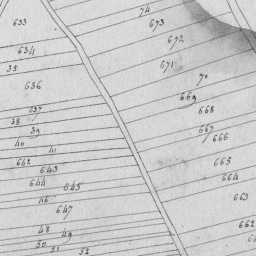 74
633
673
672
634
671
35
70
636
669
668
637
38
667
39
666
40
41
642
665
643
664
644
645
46
663
647
662
48
49
50
51
52